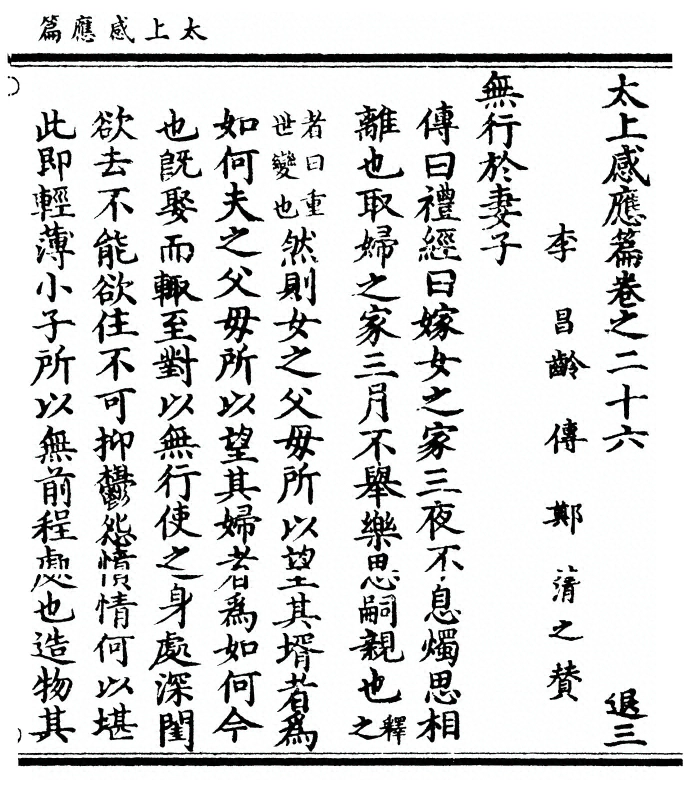 太上感應篇
太上感應篇卷之二十六 退三
李昌齡傳 鄭清之贊
無行於妻子
傳曰禮經曰嫁女之家三夜不息燭思相
離也取婦之家三月不舉樂思嗣親也釋之
者曰重世變也然則女之父母所以望其壻者爲
如何夫之父母所以望其婦者爲如何今
也旣娶而輙至對以無行使之身處深閨
欲去不能欲住不可抑鬱怨憤情何以堪
此即輕薄小子所以無前程處也造物其